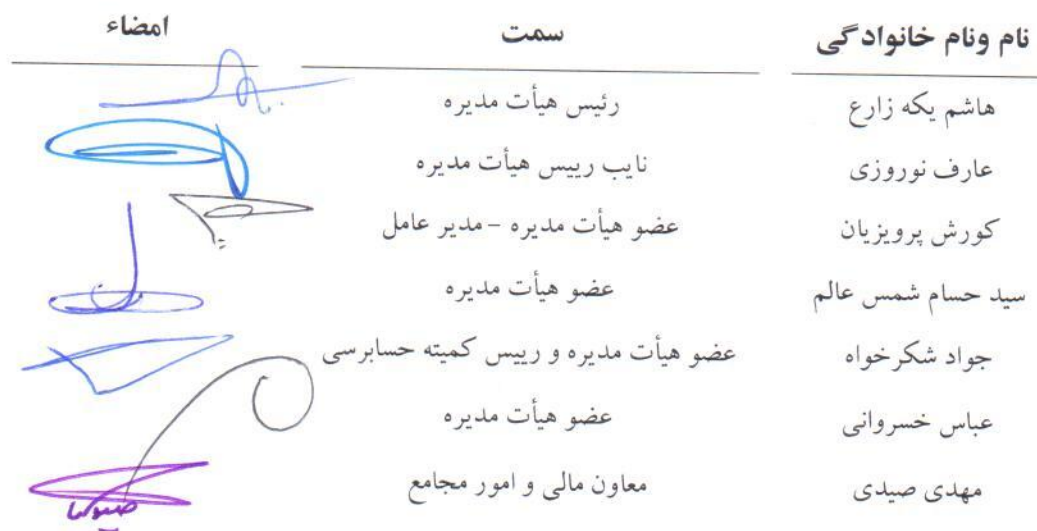 نام ونام خانوادگی سمت امضاء
هاشم یکه زارع رئیس هیأت مدیره
عارف نوروزی نایب رییس هیأت مدیره
کورش پرویزیان عضو هیأت مدیره – مدیر عامل
سید حسام شمس عالم عضو هیأت مدیره
جواد شکرخواه عضو هیأت مدیره و رییس کمیته حسابرسی
عباس خسروانی عضو هیأت مدیره
مهدی صیدی معاون مالی و امور مجامع